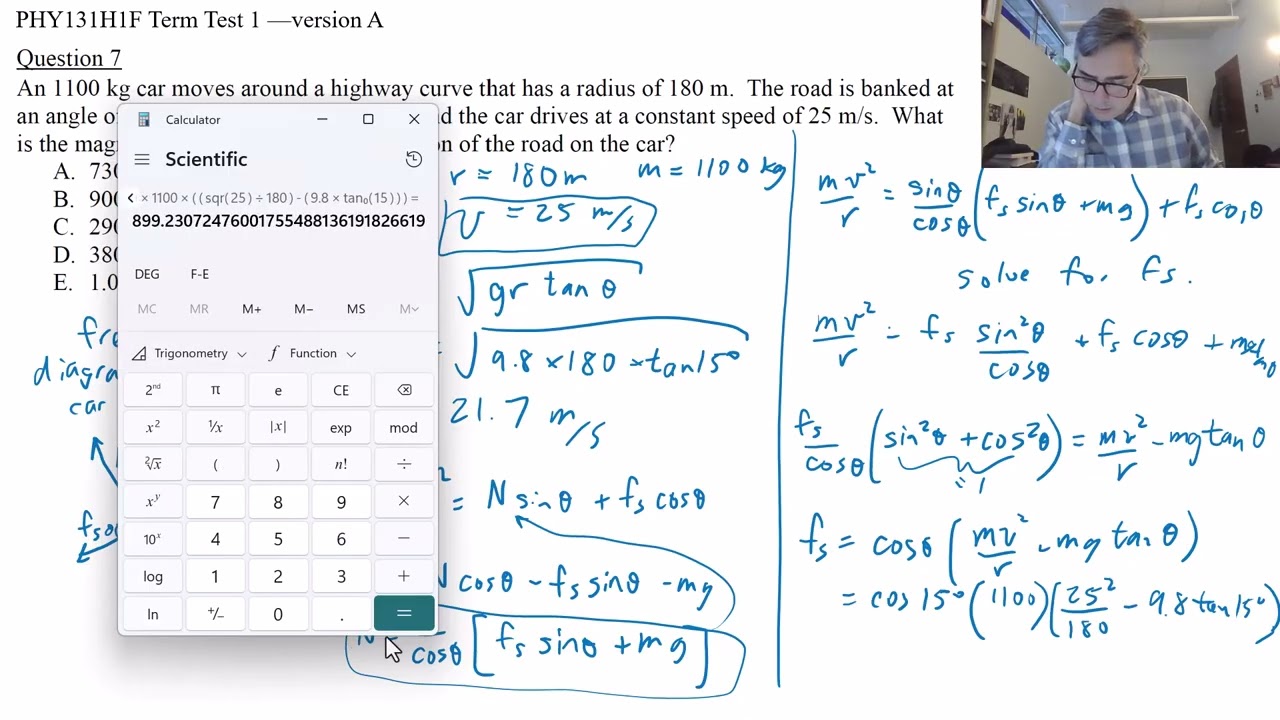 PHY131H1F Term Test 1 —version A
Question 7
An 1100 kg car moves around a highway curve that has a radius of 180 m. The road is banked at
an angle o
d the car drives at a constant speed of 25 m/s. What
is the mag
on of the road on the car?
A. 730
B. 900
C. 290
D. 380
E. 1.0
Calculator
Scientific
× 1100 × ((sqr(25) ÷ 180) - (9.8 × tan₀(15))) =
899.23072476001755488136191826619
DEG F-E
MC MR M+ M− MS M
Trigonometry f Function
2nd π e CE
x² ¹/x |x| exp mod
²√x ( ) n! ÷
xʸ 7 8 9 ×
10ˣ 4 5 6 −
log 1 2 3 +
ln +/− 0 . =
fre
diagra
car
fs
r = 180 m m = 1100 kg
v = 25 m/s
√gr tan θ
= √9.8 × 180 × tan 15°
21.7 m/s
= N sin θ + fs cos θ
N cos θ − fs sin θ − mg
cos θ [fs sin θ + mg]
mv²/r = sin θ/cos θ (fs sin θ + mg) + fs cos θ
solve for fs.
mv²/r = fs sin²θ/cos θ + fs cos θ + mg
fs/cos θ (sin²θ + cos²θ) = mv²/r − mg tan θ
= 1
fs = cos θ (mv²/r − mg tan θ)
= cos 15° (1100) (25²/180 − 9.8 tan 15°)